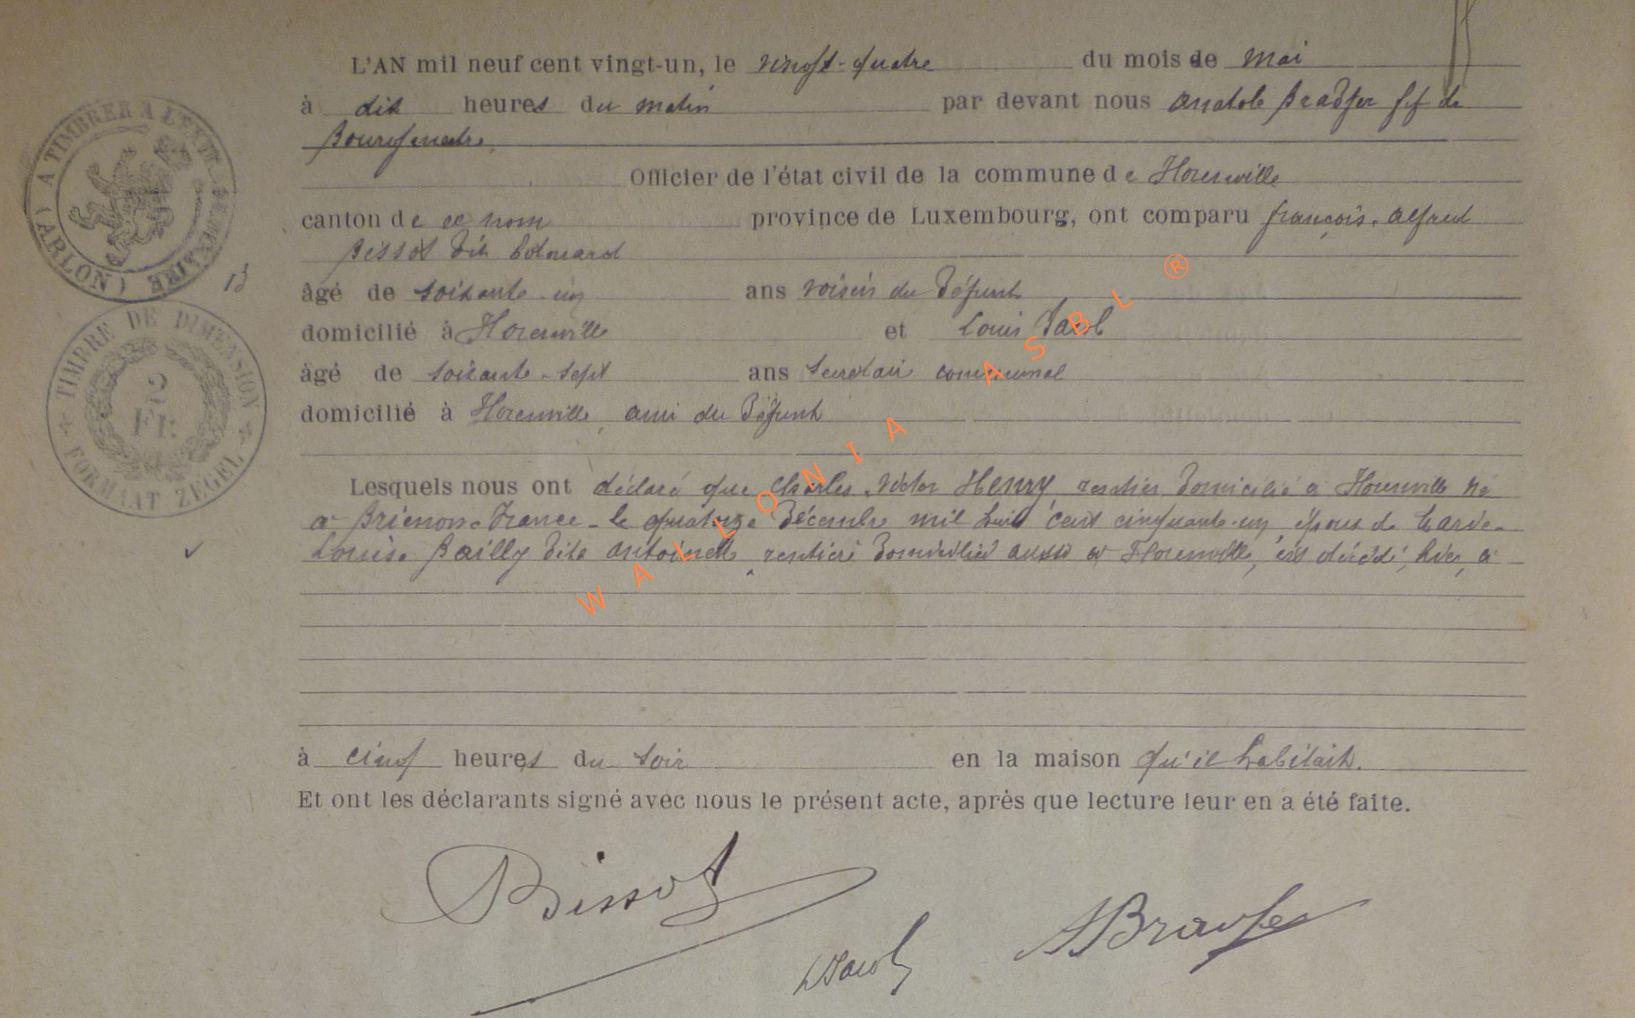 L'AN mil neuf cent vingt-un, le vingt-quatre du mois de Mai
à dix heures du matin par devant nous Anatole Bradfer ff de
Bourgmestre,
Officier de l'état civil de la commune de Florenville
canton de ce nom province de Luxembourg, ont comparu françois-Alfred
Bissot dit Edouard
âgé de soixante-un ans voisin du défunt
domicilié à Florenville et Louis Jacob
âgé de soixante-sept ans secrétaire communal
domicilié à Florenville, ami du défunt
Lesquels nous ont déclaré que Charles-Victor Henry, rentier domicilié à Florenville né
à Brienon-France-le quatorze décembre mil huit cent cinquante-un époux de
Louise Bailly dite Antoinette, rentière domiciliée aussi à Florenville, est décédé, hier, à
à cinq heures du soir en la maison qu'il habitait.
Et ont les déclarants signé avec nous le présent acte, après que lecture leur en a été faite.
Bissot
LJacob
ABradfer
A TIMBRER A L'EXTRAORDINAIRE (ARLON)
13
TIMBRE DE DIMENSION
2
FR
FORMAAT ZEGEL
WALLONIA ASBL ®